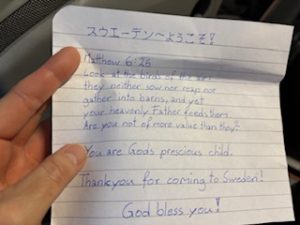 スウエーデンへようこそ!
Matthew 6:26
Look at the birds of the air:
they neither sow nor reap nor
gather into barns, and yet
your heavenly Father feeds them.
Are you not of more value than they?
You are God's prescious child.
Thank you for coming to Sweden!
God bless you!